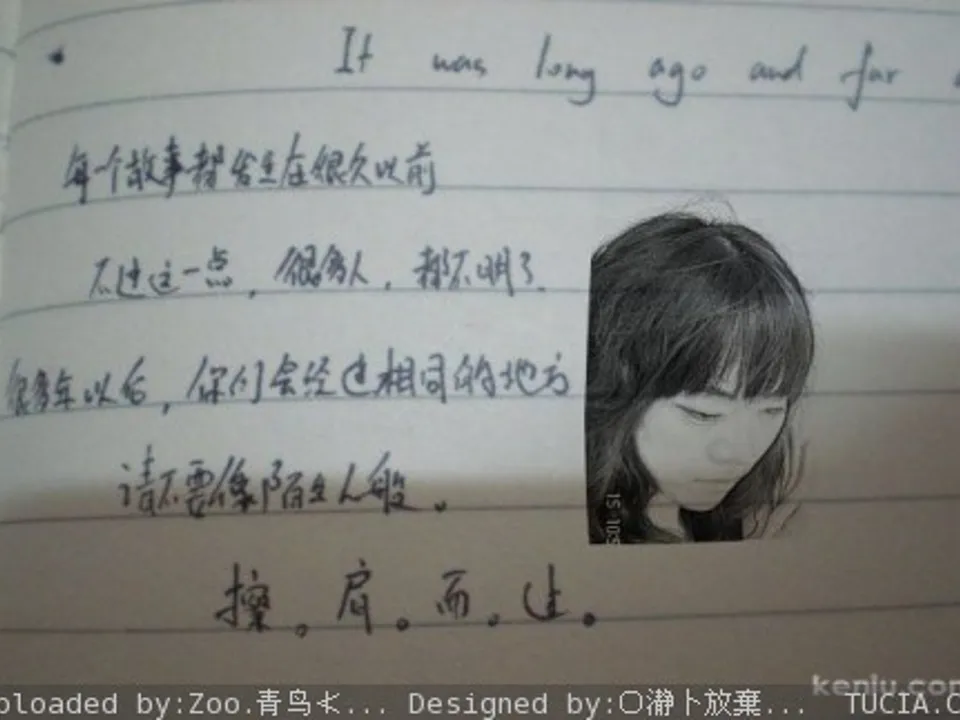 It was long ago and far
每个故事都发生在很久以前
不过这一点，很多人，都不明了.
很多年以后，你们会经过相同的地方
请不要像陌生人般。
擦。肩。而。过。
15 10:5
kenlu.com
ploaded by:Zoo.青鸟... Designed by:〇瀞卜放棄... TUCIA.C